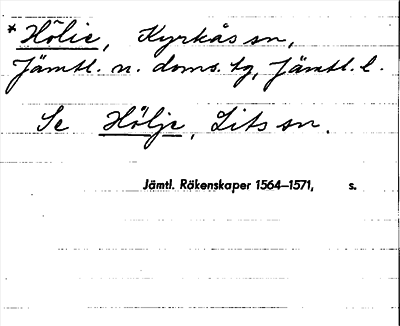 *Hölie, Kyrkås sn,
Jämtl. n. doms. tg, Jämtl. l.
Se Hölje, Lits sn.
Jämtl. Räkenskaper 1564–1571, s.